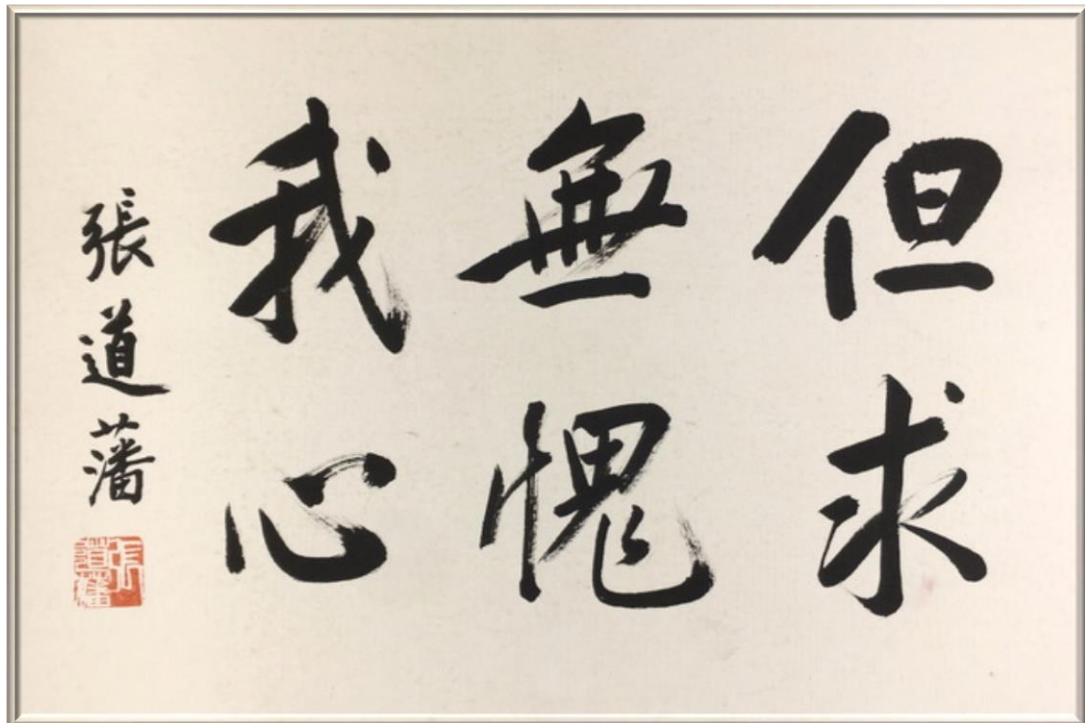 但求
無愧
我心
張道藩
張道藩